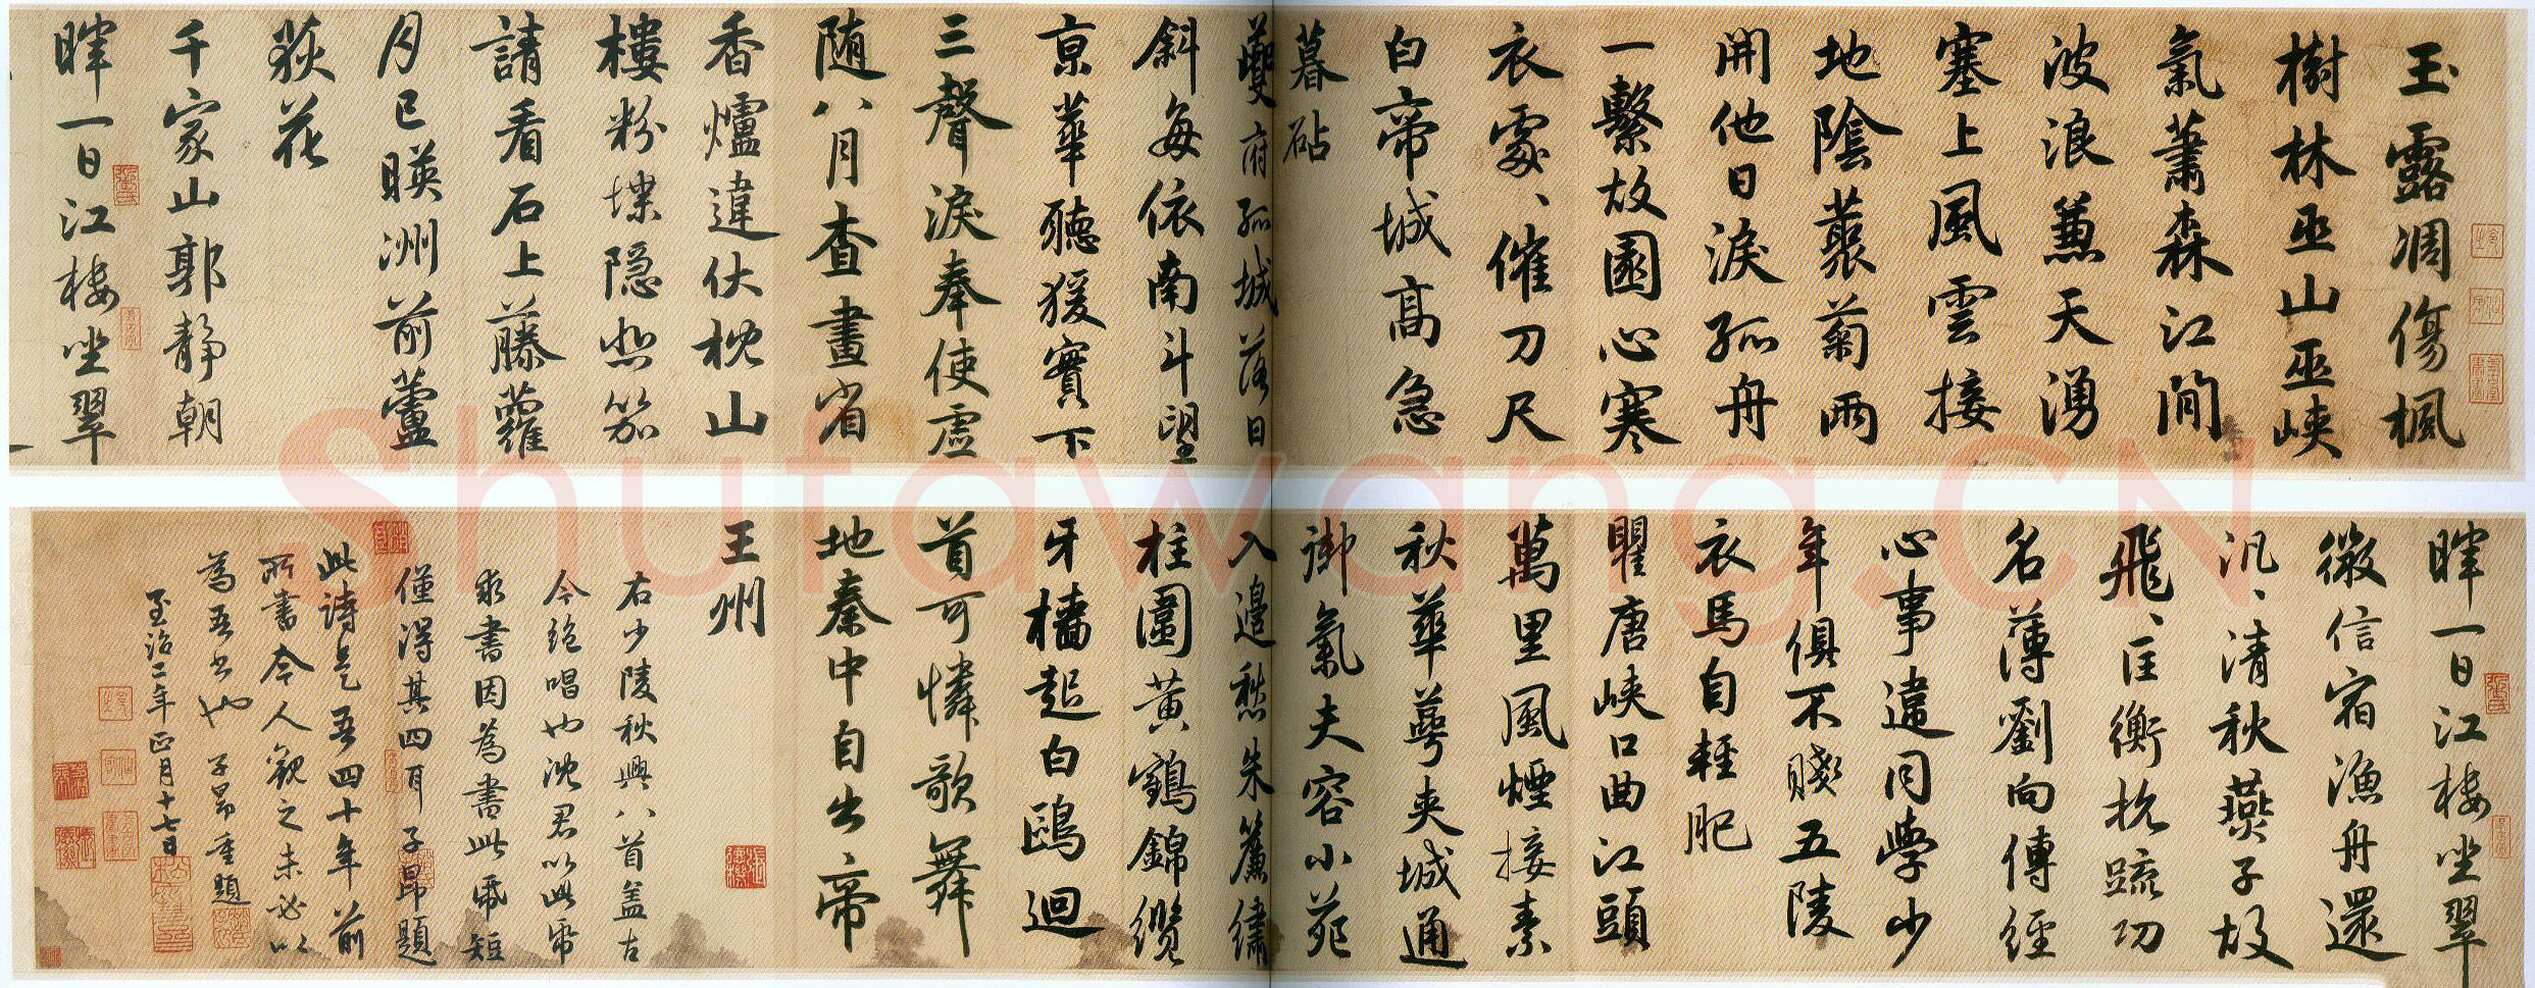 玉露凋傷楓
樹林巫山巫峽
氣蕭森江間
波浪兼天湧
塞上風雲接
地陰叢菊兩
開他日淚孤舟
一繫故園心寒
衣處、催刀尺
白帝城高急
暮砧
夔府孤城落日
斜每依南斗望
京華聽猨實下
三聲淚奉使虛
随八月查畫省
香爐違伏枕山
樓粉堞隐悲笳
請看石上藤蘿
月已暎洲前蘆
荻花
千家山郭靜朝
暉一日江樓坐翠
暉一日江樓坐翠
微信宿漁舟還
汎、清秋燕子故
飛、匡衡抗疏功
名薄劉向傳經
心事違同學少
年俱不賤五陵
衣馬自輕肥
瞿唐峽口曲江頭
萬里風煙接素
秋華萼夾城通
御氣夫容小苑
入邊愁朱簾繡
柱圍黃鶴錦纜
牙檣起白鷗迴
首可憐歌舞
地秦中自古帝
王州
右少陵秋興八首盖古
今絕唱也沈君以此帋
求書因為書此帋短
僅得其四耳子昂題
此詩是吾四十年前
所書今人觀之未必以
為吾書也子昂重題
至治二年正月十七日
Shufawang.CN